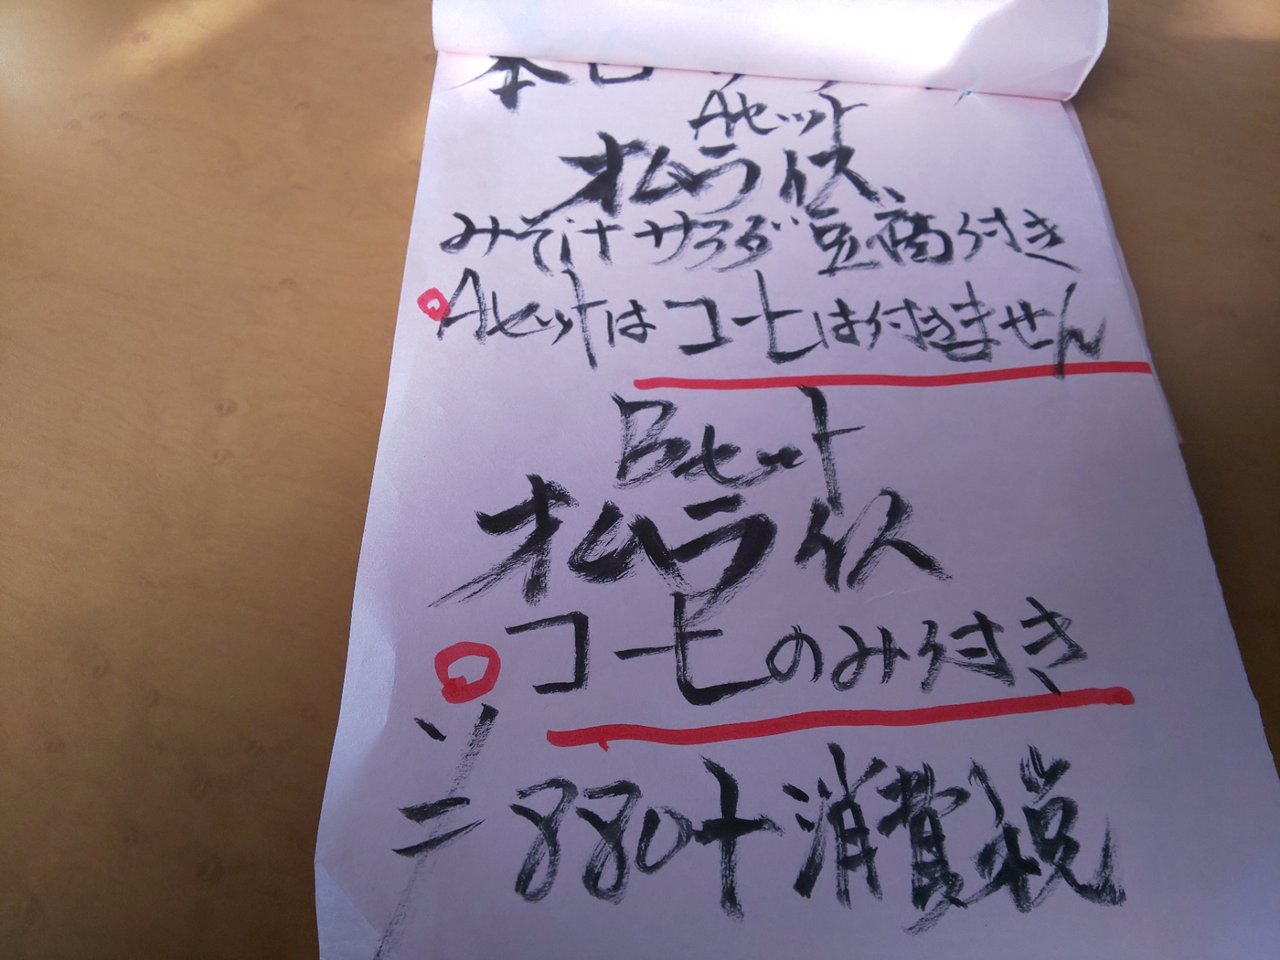 本日
Aセット
オムライス、
みそ汁サラダ豆腐付き
Aセットはコーヒは付きません
Bセット
オムライス
コーヒのみ付き
880+消費税